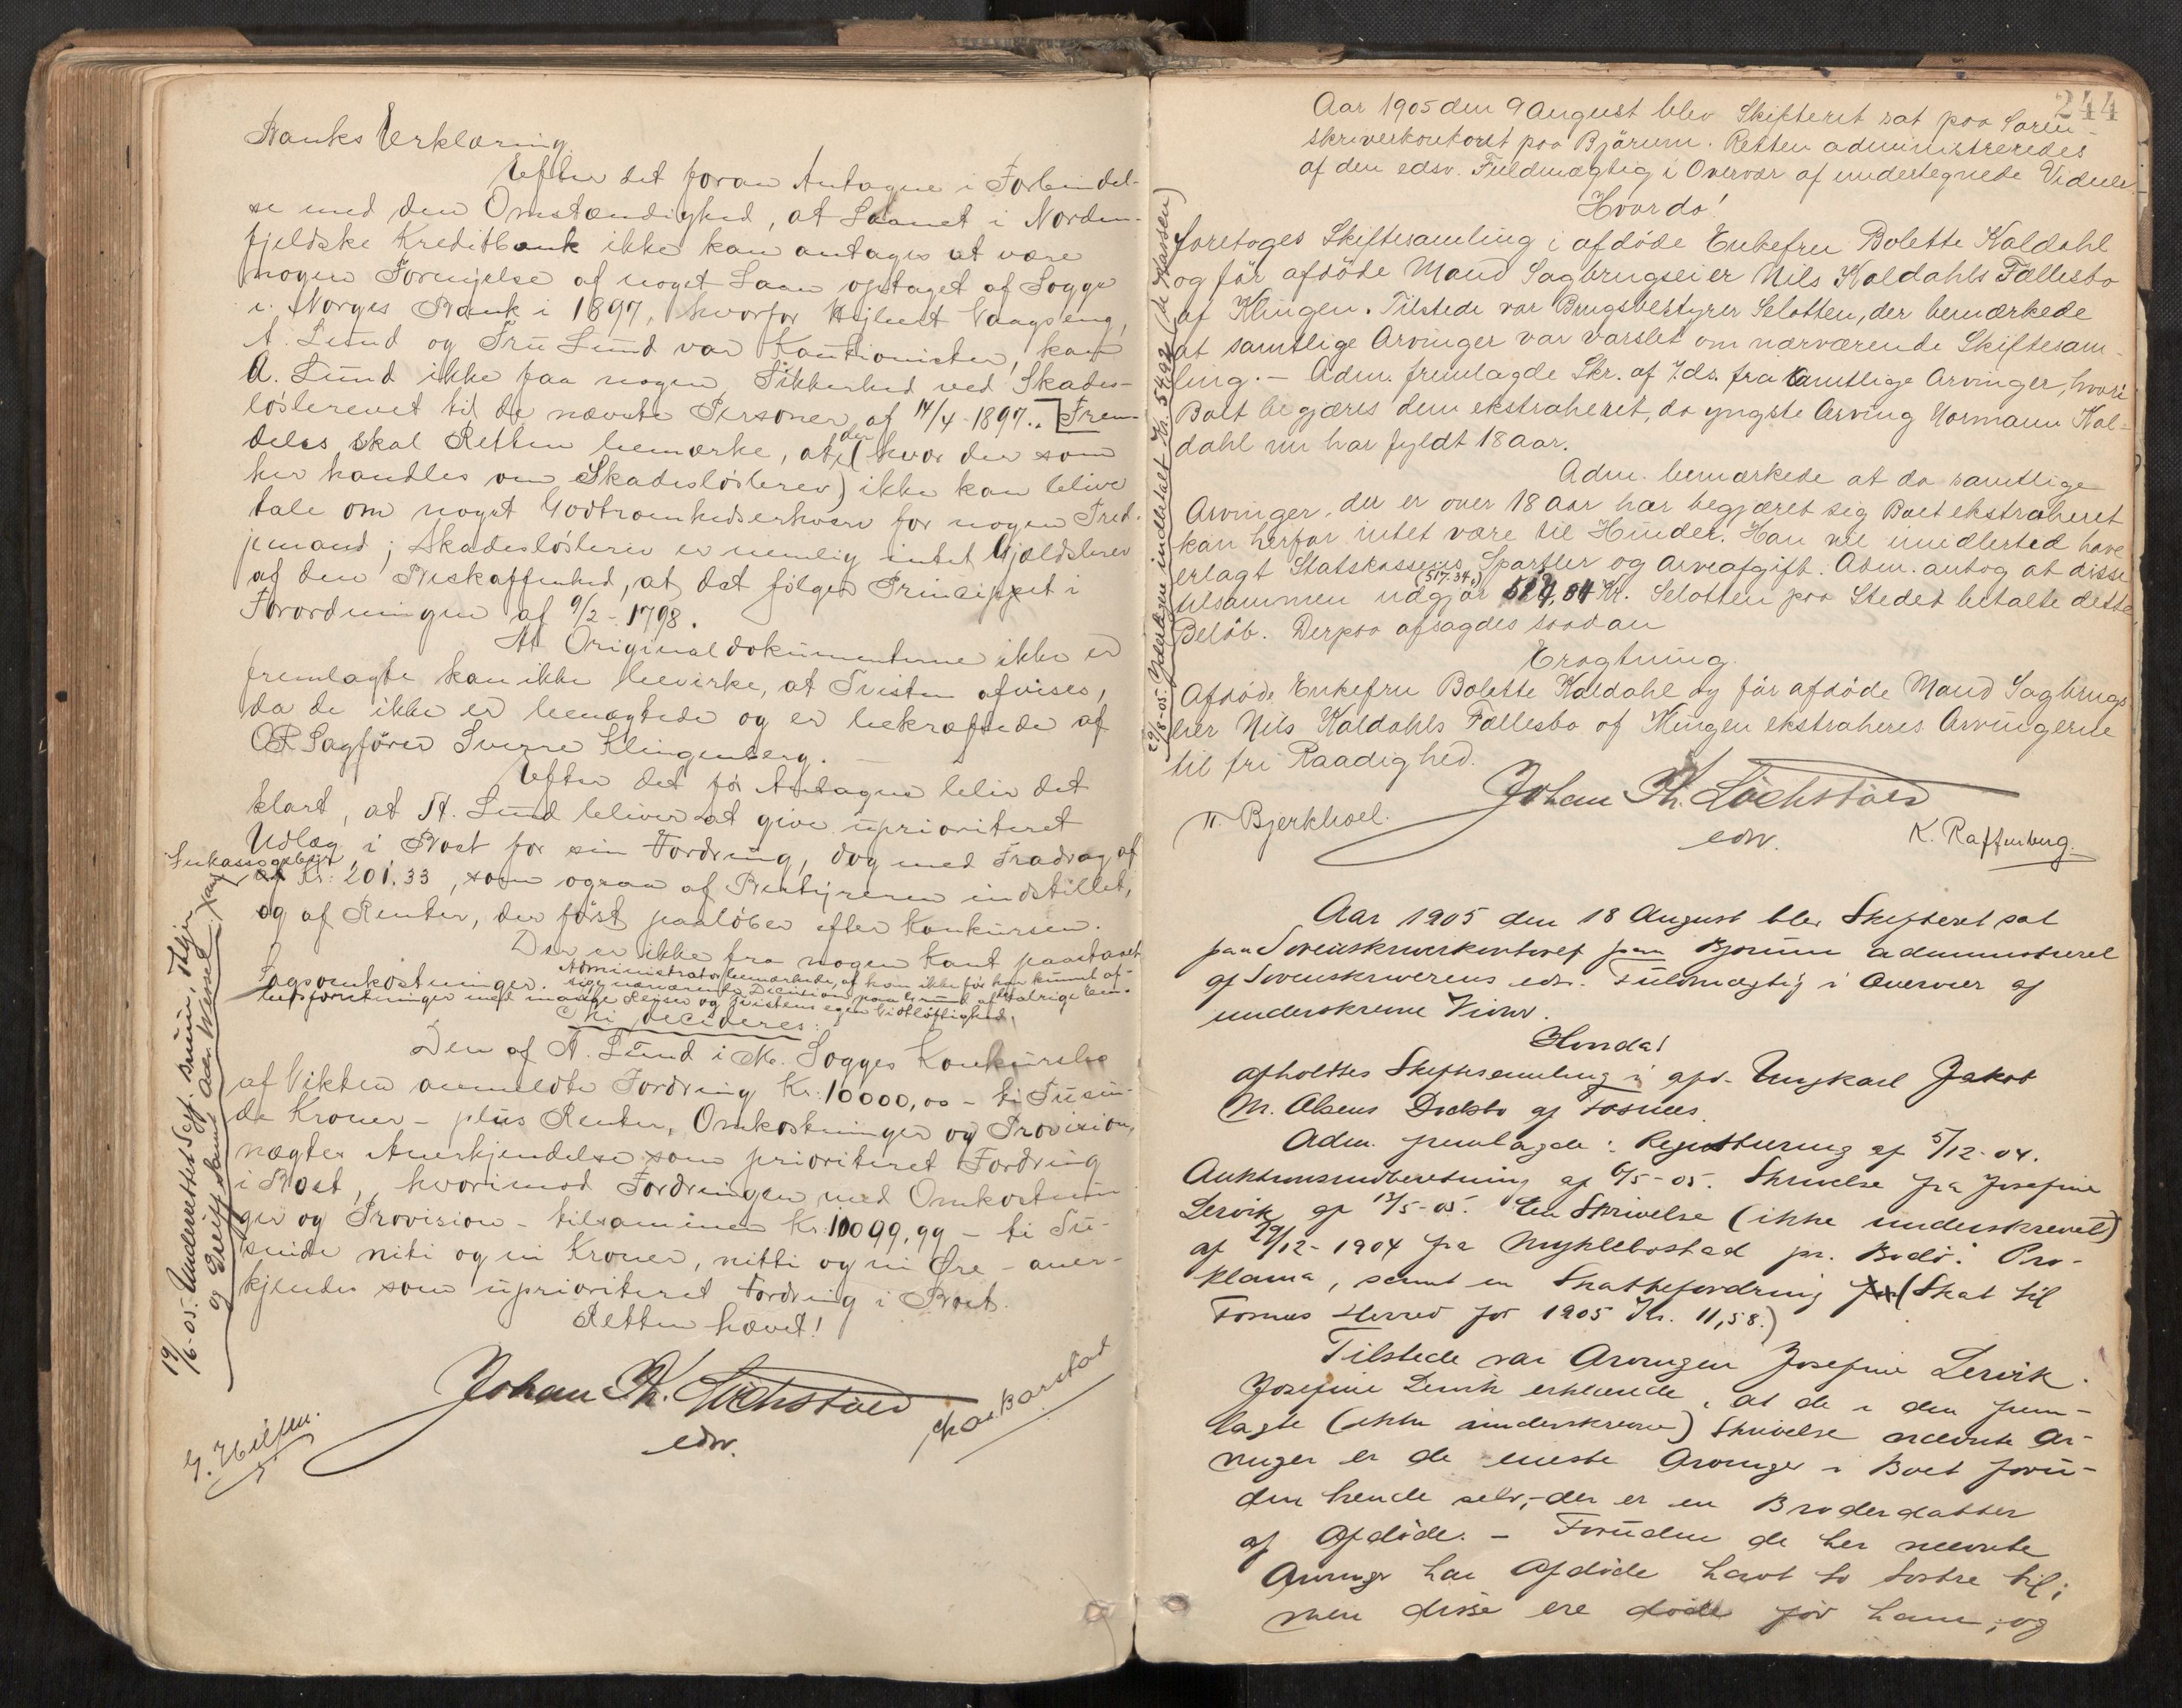 Banks Erklæring.
Efter det foran Antagne i Forbindel-
se med den Omstændighed, at Laanet i Norden-
fjeldske Kreditbank ikke kan antages at være
nogen Fornyelse af noget Laan optaget af Sogge
i Norges Bank i 1897, hvorfor Vaagseng,
A. Lund og Fru Lund var Kautionister, kan
A. Lund ikke faa nogen Sikkerhed ved Skades-
løsbrevet til de nævnte Personer af 14/4-1897. [Frem-
deles skal Retten bemærke, at der (hvor der som
her handles om Skadesløsbrev) ikke kan blive
tale om noget Godtroenhedserhverv for nogen Tred-
jemand; Skadesløsbrev er nemlig intet Gjældsbrev
af den Beskaffenhed, at det følger Princippet i
Forordningen af 9/2-1798.
At Originaldokumenterne ikke er
fremlagte kan ikke bevirke, at Tvisten afvises,
da de ikke er benægtede og er bekræftede af
O.R. Sagfører Sverre Klingenberg. —
Efter det før Antagne blir det
klart, at A. Lund bliver at give uprioriteret
Udlæg i Boet for sin Fordring, dog med Fradrag af
Inkassogebyr
Kr: 201.33, som ogsaa af Bestyreren indstillet,
og af Renter, der først paaløber efter Konkursen.
Der er ikke fra nogen Kant paastaaet
Sagsomkostninger. Administrator bemærkede, at han ikke før har kunnet af-
sige nærværende Decision paa Grund af talrige Em-
bedsforretninger med mange Reiser og Tvistens egen Vidtløftighed.
Thi decideres:
Den af A. Lund i M. Sogges Konkursbo
af Vikten anmeldte Fordring Kr. 10000,00 – ti Tusin-
de Kroner – plus Renter, Omkostninger og Provision,
nægtes Anerkjendelse som prioriteret Fordring
i Boet, hvorimod Fordringen med Omkostnin-
ger og Provision – tilsammen Kr. 10099,99 – ti Tu-
sinde niti og ni Kroner, nitti og ni Øre – aner-
kjendes som uprioriteret Fordring i Boet.
Retten hævet!
Johan Th. Lochstöer
edsv.
19/6-05. Underrettet Sagf. Bruun, Thjem
og Greiff samt Adv. Wessel
Aar 1905 den 9 August blev Skifteret sat paa Soren-
skriverkontoret paa Bjørum. Retten administreredes
af den edsv. Fuldmægtig i Overvær af undertegnede Vidner
Hvorda!
foretoges Skiftesamling i afdøde Enkefru Bolette Kaldahl
og før afdøde Mand Sagbrugseier Nils Kaldahls Fællesbo
af Klingen. Tilstede var Brugsbestyrer Selotten, der bemærkede
at samtlige Arvinger var varslet om nærværende Skiftesam-
ling. – Adm. fremlagde Skr. af 7.ds. fra samtlige Arvinger, hvori
Boet begjæres dem ekstraheret, da yngste Arving Normann Kal-
dahl nu har fyldt 18 aar.
Adm. bemærkede at da samtlige
Arvinger, der er over 18 aar har begjæret sig Boet ekstraheret
kan herfor intet være til Hinder. Han vil imidlertid have
erlagt Statskassens Sportler og Arveafgift. Adm. antog at disse
(517.34.)
tilsammen udgjør Kr. Selotten paa Stedet betalte dette
Beløb. Derpaa afsagdes saadan
Eragtning.
Afdøde Enkefru Bolette Kaldahl og før afdøde Mand Sagbrugs-
eier Nils Kaldahls Fællesbo af Klingen ekstraheres Arvingerne
til fri Raadighed.
Johan Th. Lochstöer
edsv.
Bjerkhoel.
K. Raffenberg.
Aar 1905 den 18 August blev Skifteret sat
paa Sorenskriverkontoret paa Bjørum administreret
af Sorenskriverens edsv. Fuldmægtig i Overvær af
underskrevne Vidner.
Hvorda!
afholdtes Skiftesamling i afd. Ungkarl Jakob
M. Olsens Dødsbo af Fosnes.
Adm. fremlagde: Registrering af 5/12-04.
Auktionsindberetning af 6/5-05. Skrivelse fra Josefine
Lervik af 13/5-05. En Skrivelse (ikke underskrevet)
af 29/12-1904 fra Myklebostad pr. Bodø. Pro-
klama, samt en Skattefordring (Skat til
Fosnes Herred for 1905 Kr. 11,58.)
Tilstede var Arvingen Josefine Lervik.
Josefine Lervik erklærede, at de i den frem-
lagte (ikke underskrevne) Skrivelse nævnte Ar-
vinger er de eneste Arvinger i Boet foru-
den hende selv, – der er en Broderdatter
af Afdøde. – Foruden de her nævnte
Arvinger har Afdøde havt to Søstre til;
men disse ere døde før ham, og
244